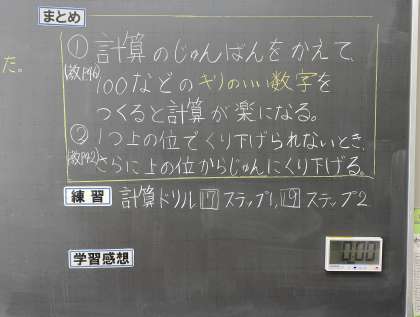 まとめ
だ。
① 計算のじゅんばんをかえて、
(教P46) 100などのキリのいい数字を
つくると計算が楽になる。
② 1つ上の位でくり下げられないとき、
(教P42) さらに上の位からじゅんにくり下げる。
練習 計算ドリル 17 ステップ1, 19 ステップ2
学習感想
0:00